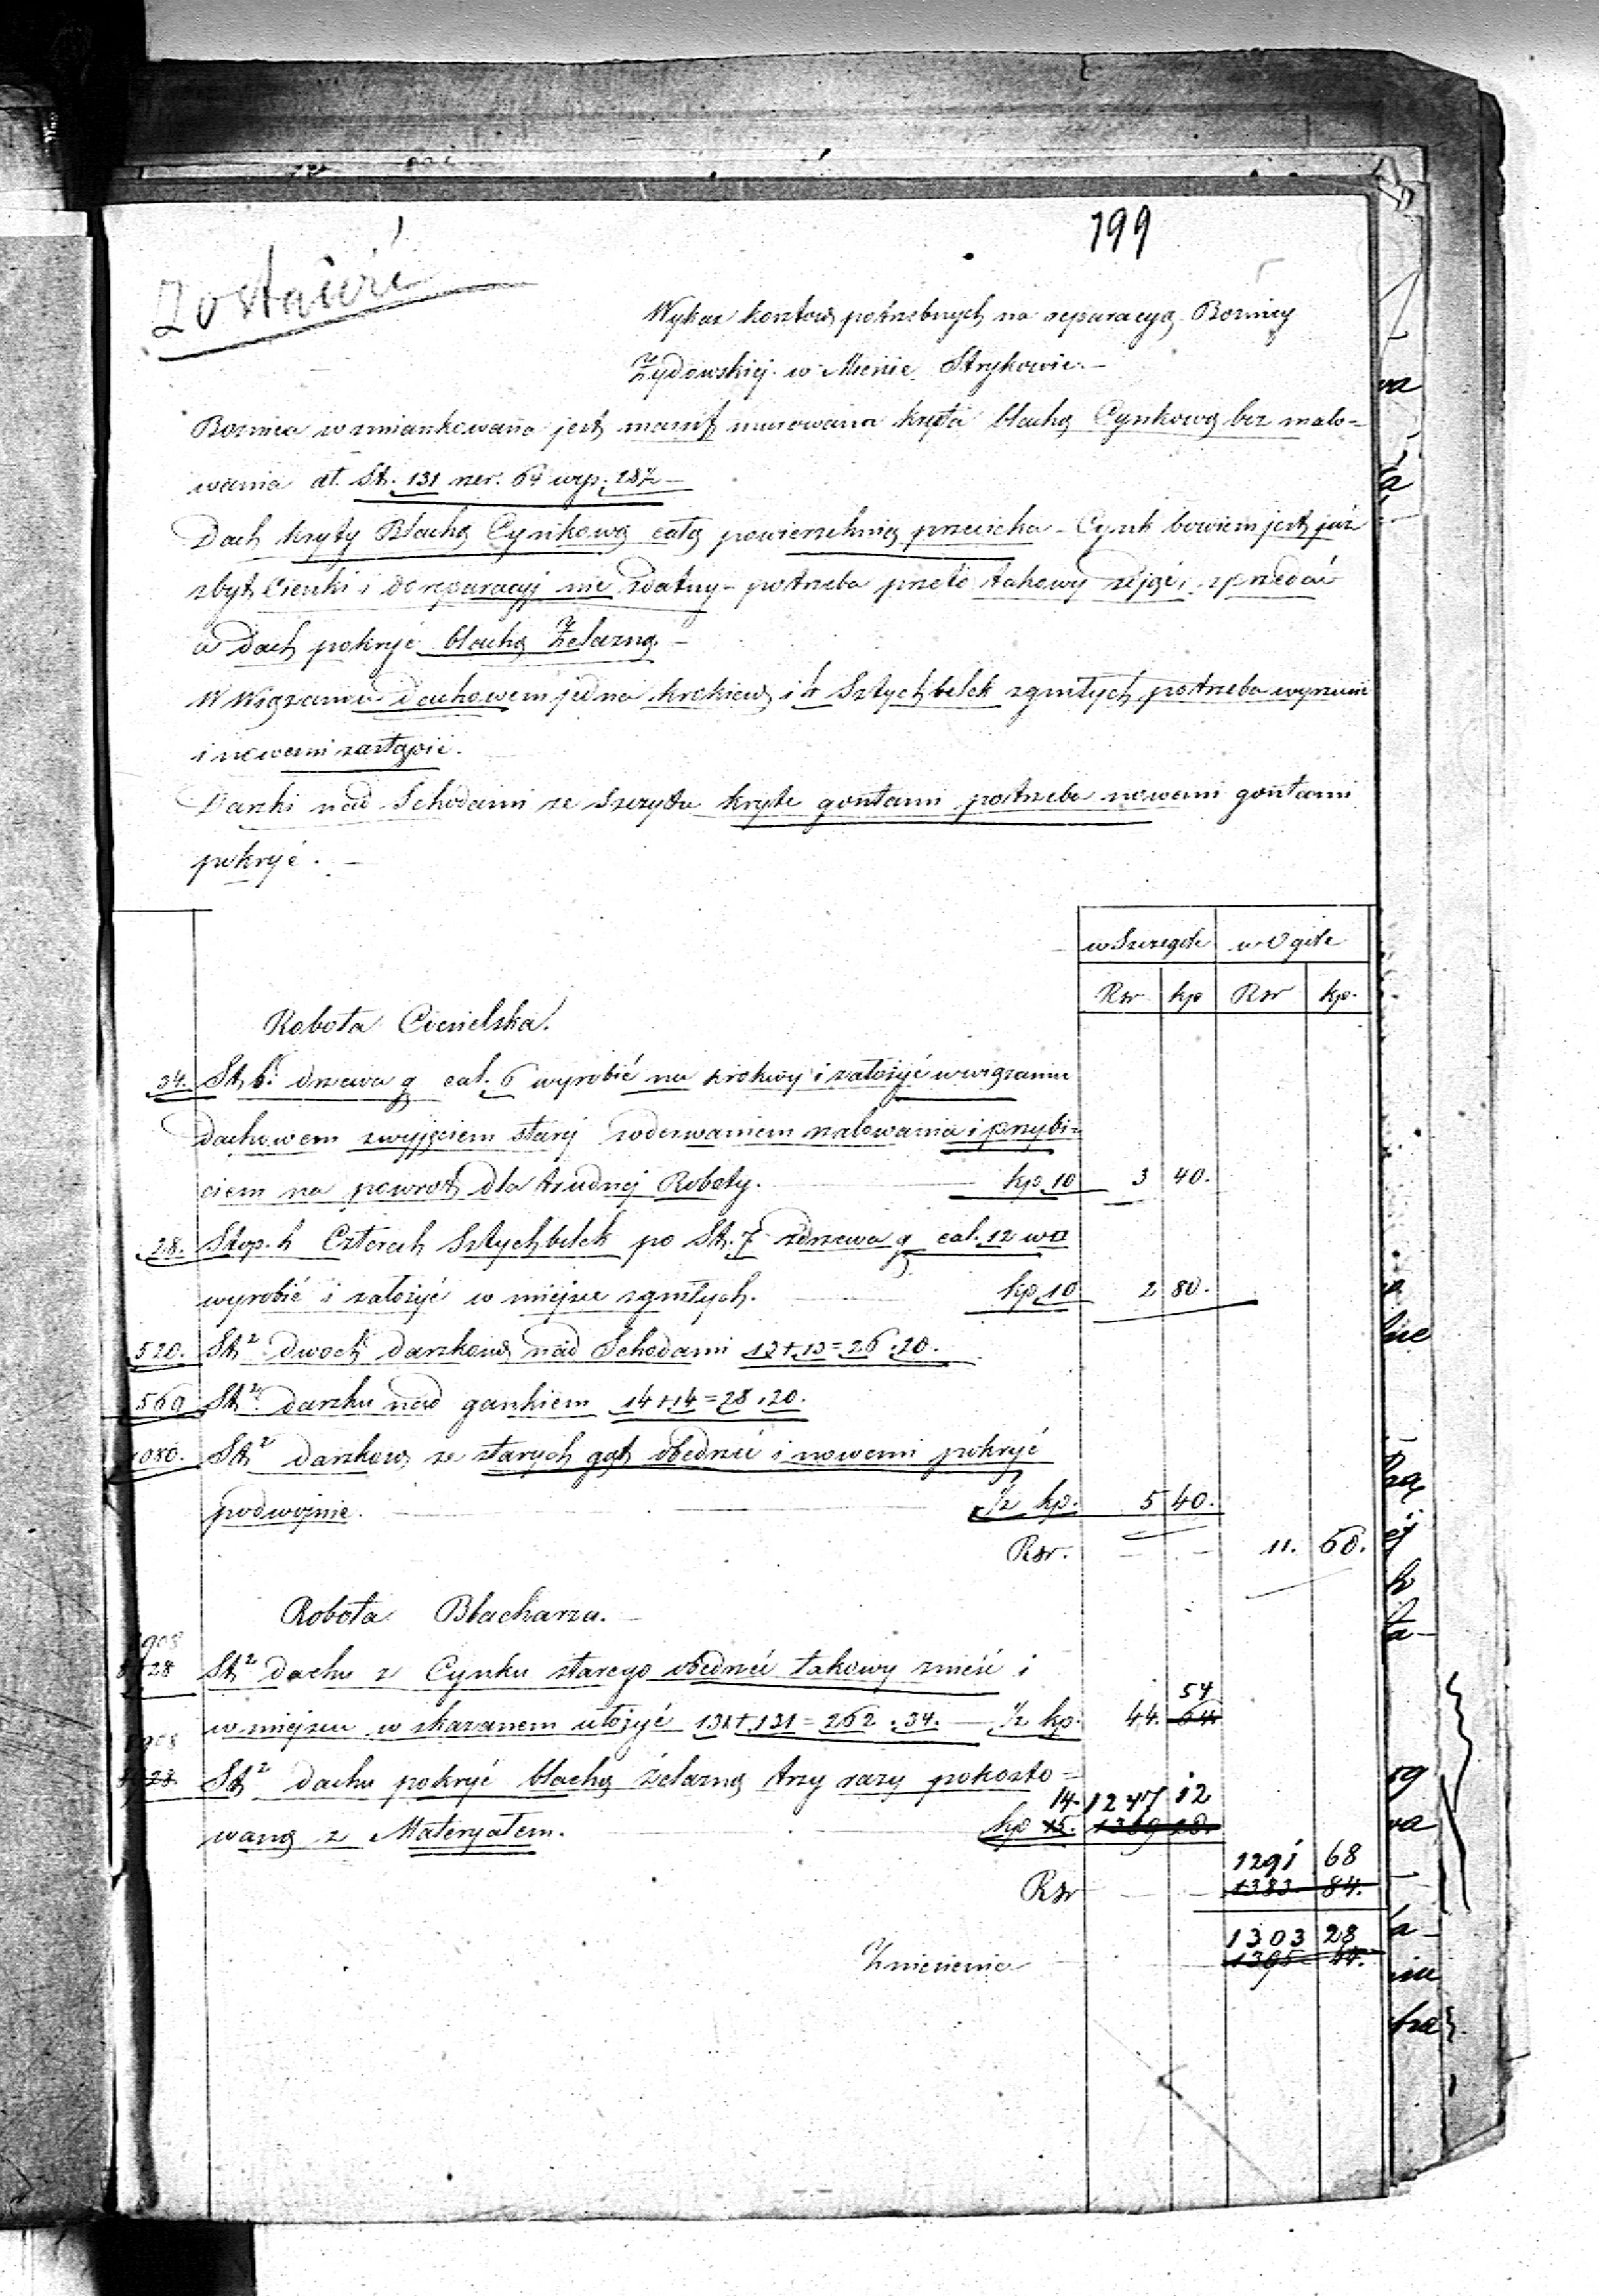 199
Zostawić
Wykaz kosztow potrzebnych na reparacyą Boznicy
Żydowskiej w Miescie Strykowie. –
Boznica wzmiankowana jest massif murowana kryta blachą Cynkową bez malo=
wania dł. St. 131 szer. 64 wys. 28½ –
Dach kryty Blachą Cynkową całą powierzchnią przecieka – Cynk bowiem jest już
zbyt Cienki i do reparacyj nie zdatny – potrzeba przeto takowy zdjąć i sprzedać
a Dach pokryć blachą Żelazną. –
W Wiązaniu dachowem jedna krokiew i 4 Sztychbelek zgniłych potrzeba wyrzucić
i nowemi zastąpić.
Daszki nad Schodami ze Szczytu kryte gontami potrzeba nowemi gontami
pokryć. –
w Szczególe w Ogóle
Rsr kp Rsr kp.
Robota Ciesielska.
34. St. b. drzewa g cal. 6 wyrobić na krokwy i założyć w wiązaniu
dachowem z wyjęciem starej z oderwaniem szalowania i przybi=
ciem na powrot dla trudnej Roboty. kp 10 3 40.
28. Stop. b Czterech Sztychbelek po St. 7 z drzewa g cal. 12 w □
wyrobić i założyć w miejsce zgniłych. kp 10 2 80.
520. St² dwoch daszkow nad Schodami 13+13=26.20.
560 St² daszku nad gankiem 14+14=28.20.
1080. St² daszkow ze starych gąt obedrzeć i nowemi pokryć
podwojnie. ½ kp. 5 40.
Rsr. 11. 60.
Robota Blacharza. –
8908
St² dachu z Cynku starego obedrzeć takowy znieść i
54
w miejscu wskazanem ułożyć 131+131=262.34. – ½ kp. 44. 64
8908
St² dachu pokryć blachą żelazną trzy razy pokosto=
14. 1247 12
waną z Materyałem. kp 15. 1369 20.
1291 68
Rsr 1383 84.
1303 28
Zniesienie 1395 44.